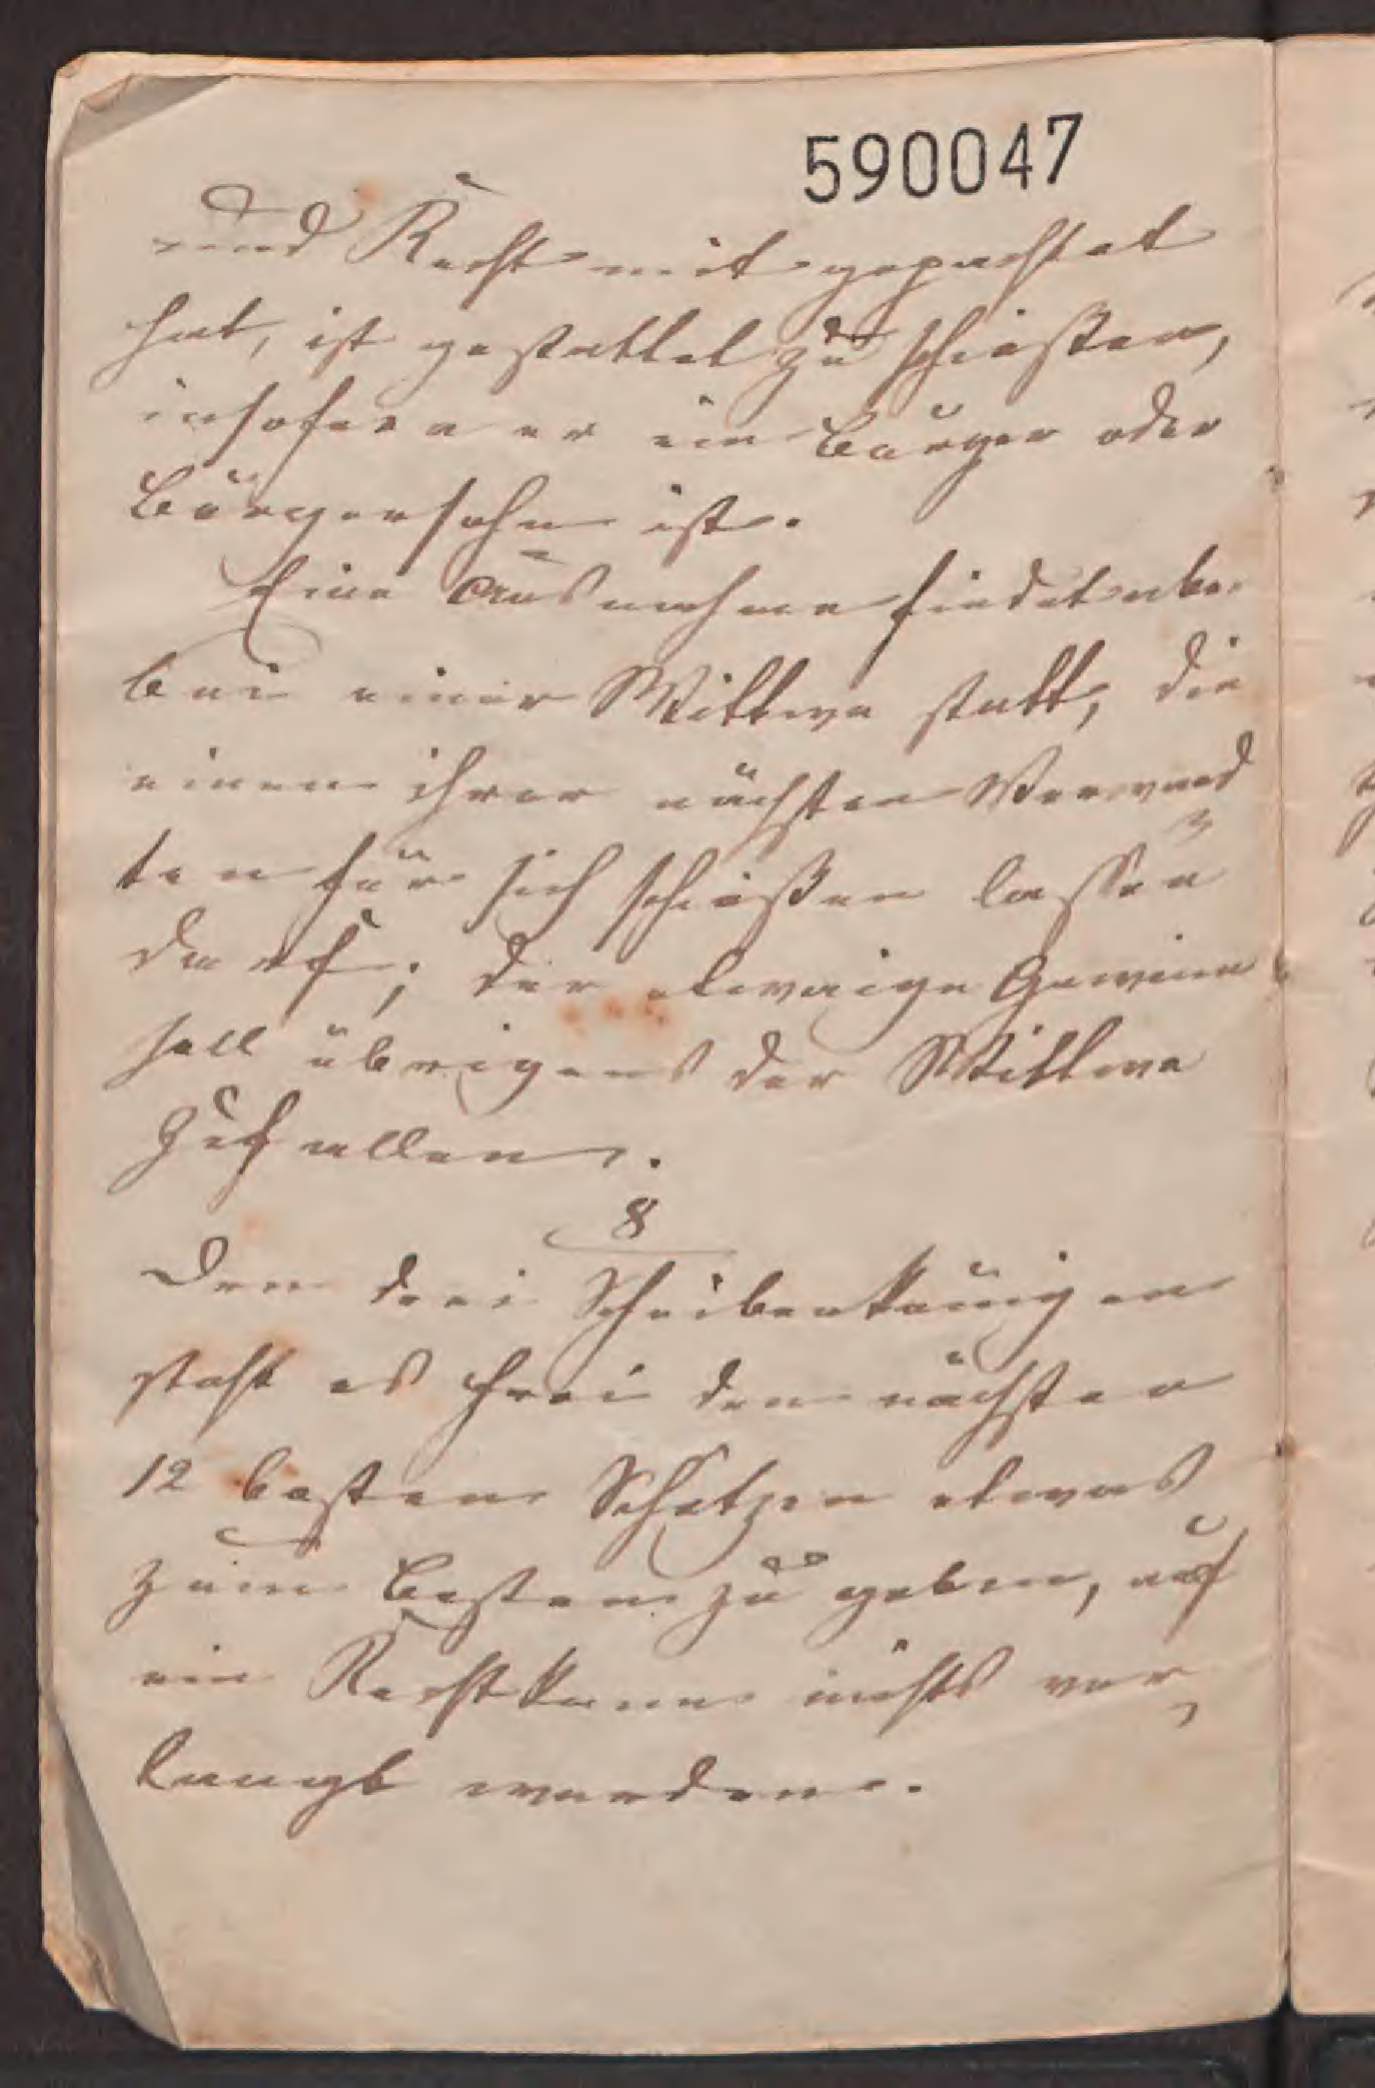 590047
und Recht mit gepachtet
hat, ist gestattet zu schießen,
insofern er ein Bürger oder
Bürgersohn ist.
Eine Ausnahme findet aber
bei einer Wittwe statt, die
einen ihrer nächsten Verwand
ten für sich schießen lassen
darf; der etwaige Gewinn
soll übrigens der Wittwe
zufallen.
8
Den drei Scheibenkönigen
steht es frei den nächsten
12 besten Schützen etwas
zum Besten zu geben, auf
ein Recht kann nichts ver
langt werden.